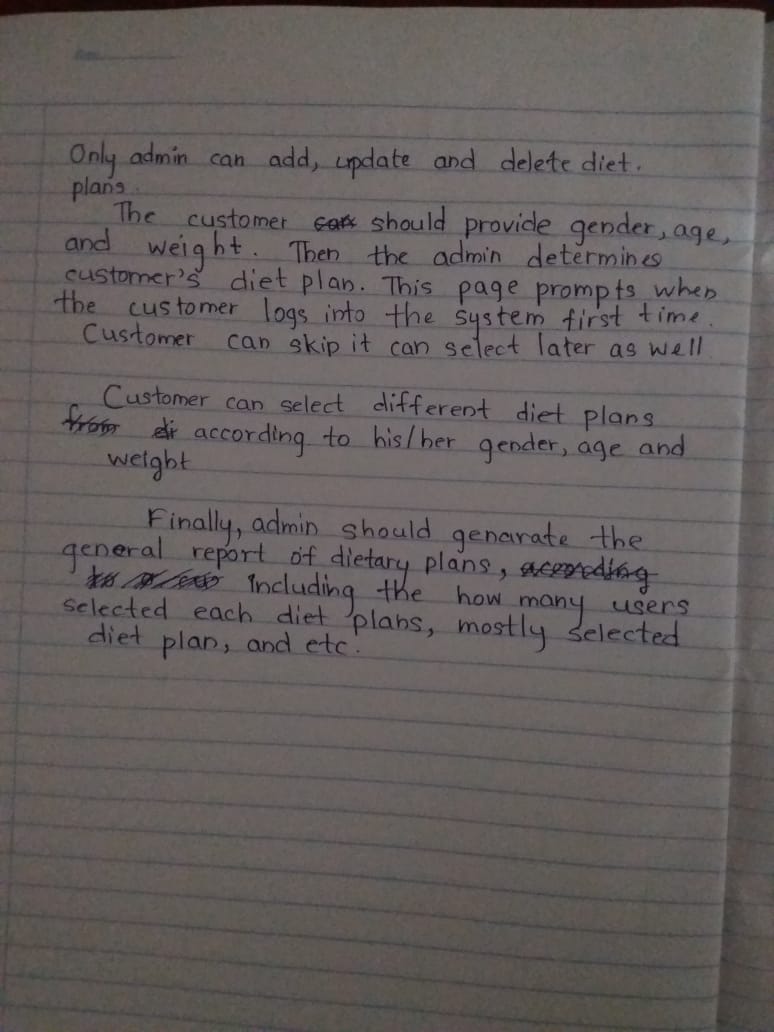 Only admin can add, update and delete diet.
plans.
The customer should provide gender, age,
and weight. Then the admin determines
customer's diet plan. This page prompts when
the customer logs into the system first time.
Customer can skip it can select later as well
Customer can select different diet plans
from according to his/her gender, age and
weight
Finally, admin should genarate the
general report of dietary plans, according
Including the how many users
selected each diet plans, mostly selected
diet plan, and etc.